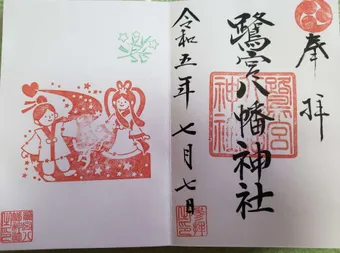 奉拝
鷺宮八幡神社
鷺宮
神社
令和五年七月七日